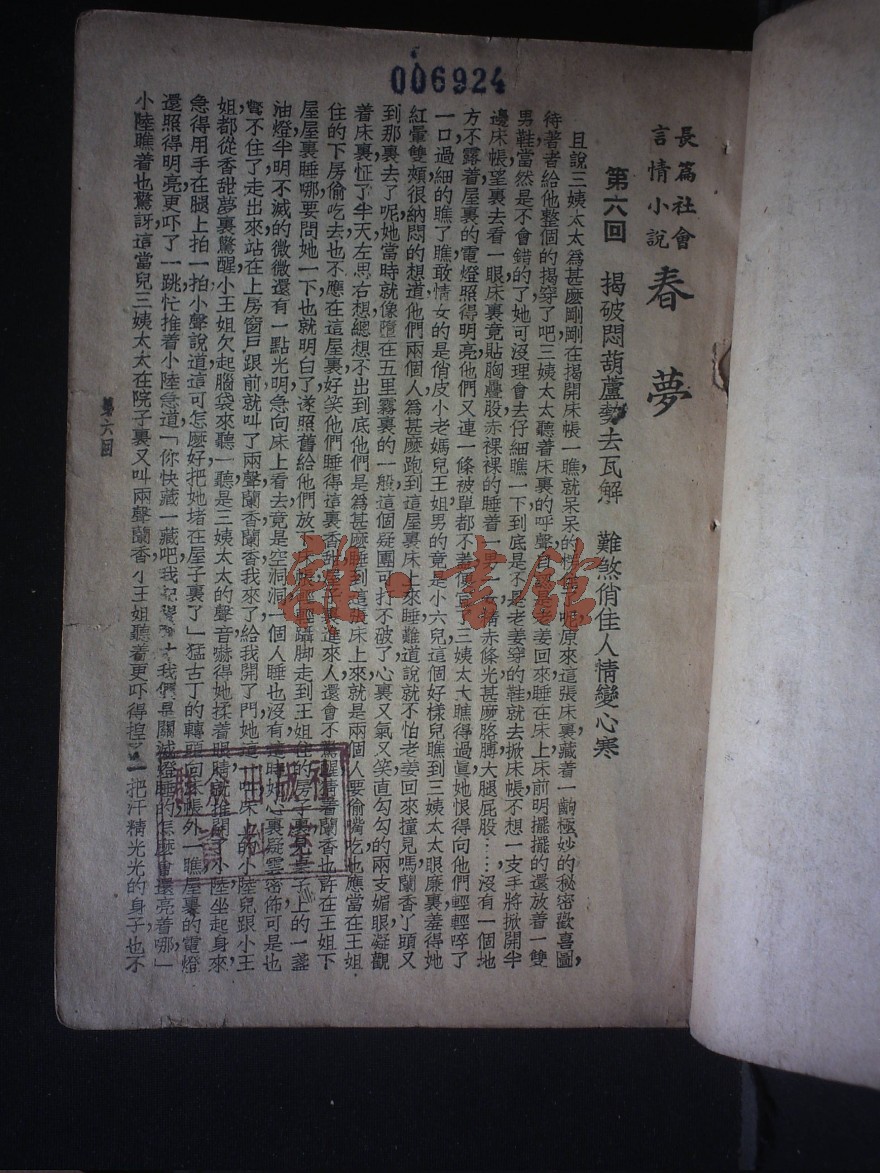 006924
長篇社會
言情小說
春夢
第六回 揭破悶葫蘆勢去瓦解 難煞俏佳人情變心寒
且說三姨太太爲甚麼剛剛在揭開床帳一瞧就呆呆的 呢原來這張床裏藏着一齣極妙的秘密歡喜圖,
待著者給他整個的揭穿了吧三姨太太聽着床裏的呼聲 老姜回來睡在床上床前明擺擺的還放着一雙
男鞋當然是不會錯的了她可沒理會去仔細瞧一下到底是不是老姜穿的鞋就去掀床帳不想一支手將掀開半
邊床帳望裏去看一眼床裏竟貼胸疊股赤裸裸的睡着一男一 赤條光甚麼胳膊大腿屁股……沒有一個地
方不露着屋裏的電燈照得明亮他們又連一條被單都不蓋 三姨太太瞧得過眞她恨得向他們輕輕啐了
一口過細的瞧了瞧敢情女的是俏皮小老媽兒王姐男的竟是小六兒這個好樣兒瞧到三姨太太眼廉裏羞得她
紅暈雙頰很納悶的想道他們兩個人爲甚麼跑到這屋裏床上來睡難道說就不怕老姜回來撞見嗎蘭香丫頭又
到那裏去了呢她當時就像墮在五里霧裏的一般這個疑團可打不破了心裏又氣又笑直勾勾的兩支媚眼凝觀
着床裏怔了半天左思右想總想不出到底他們是爲甚麼睡到這張床上來就是兩個人要偷嘴吃也應當在王姐
住的下房偷吃去也不應在這屋裏好笑他們睡得這裏香甜屋子裏進來人還會不驚醒猜着蘭香也許在王姐下
屋屋裏睡哪要問她一下也就明白了遂照舊給他們放 輕躡脚走到王姐住的房子裏見桌子上的一盞
油燈半明不滅的微微還有一點光明急向床上看去竟是空洞洞一個人睡也沒有這時她心裏疑雲密佈可是也
彆不住了走出來站在上房窗戶跟前就叫了兩聲蘭香蘭香我來了給我開了門她這一叫床上的小陸兒跟小王
姐都從香甜夢裏驚醒小王姐欠起腦袋來聽一聽是三姨太太的聲音嚇得她揉着眼睛就推開了小陸坐起身來,
急得用手在腿上拍一拍小聲說道這可怎麽好把她堵在屋子裏了」猛古丁的轉頭向床帳外一瞧屋裏的電燈
還照得明亮更吓了一跳忙推着小陸急道「你快藏一藏吧我 我們是關滅燈睡的怎麼會還亮着哪」
小陸瞧着也驚訝這當兒三姨太太在院子裏又叫兩聲蘭香小王姐聽着更吓得揑了一把汗精光光的身子也不
第六回
雜·書館